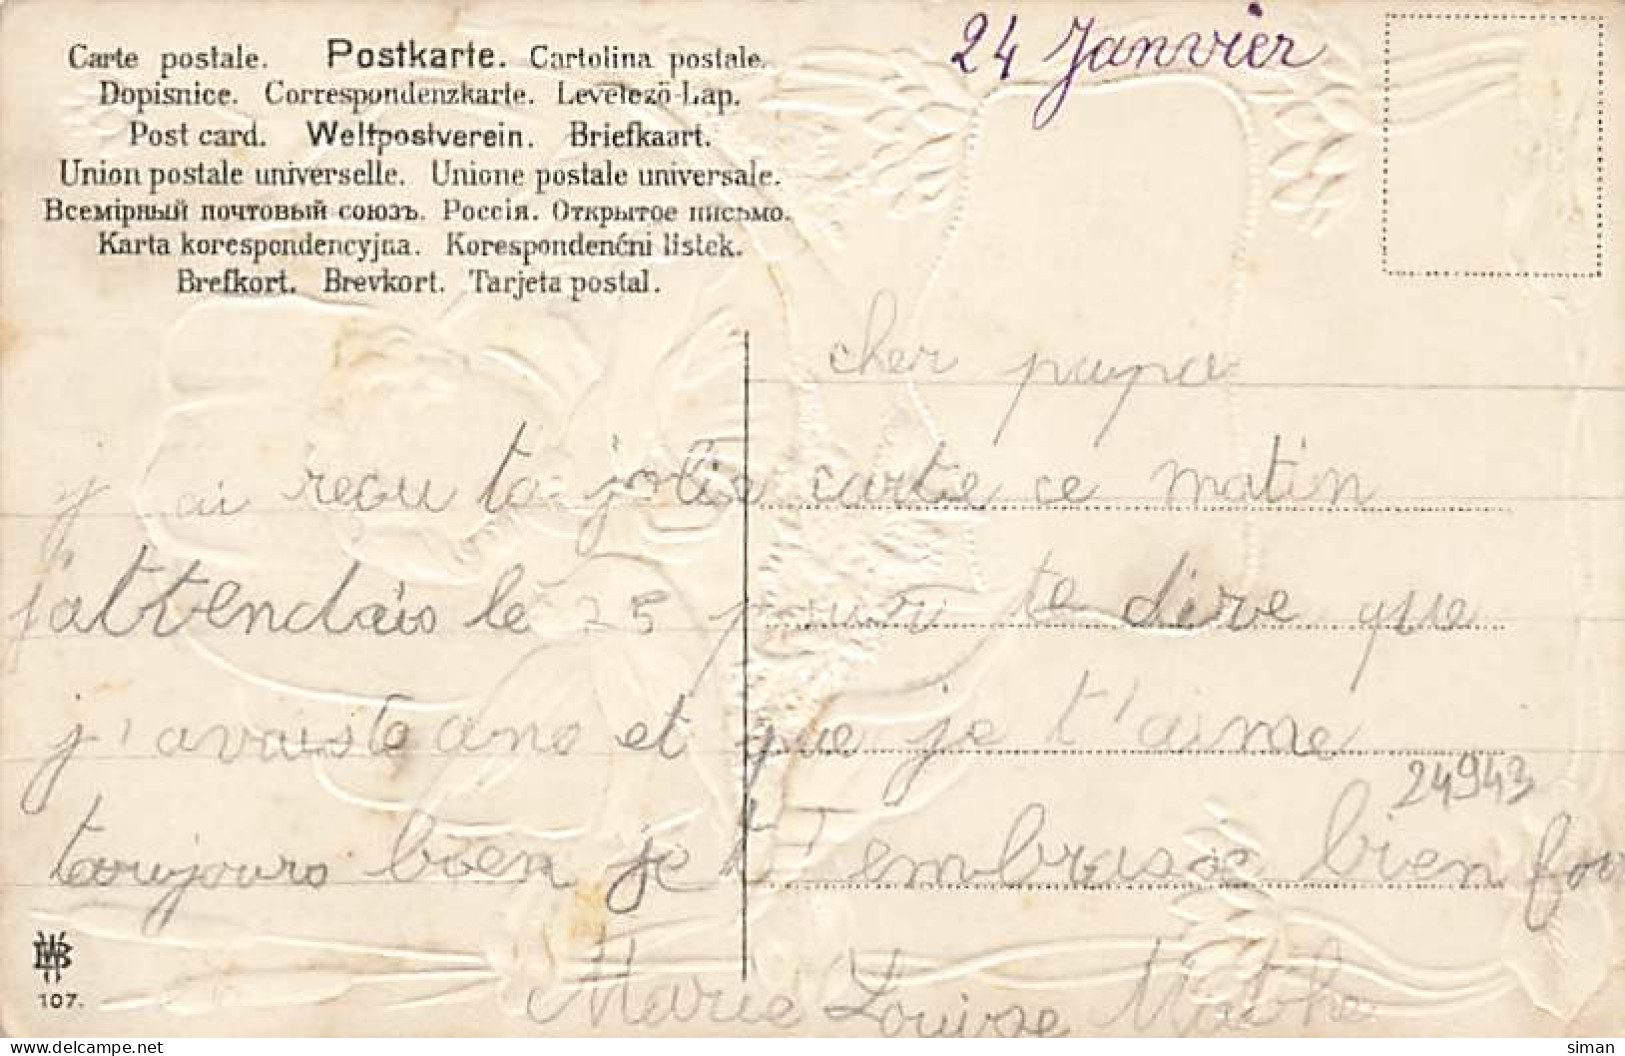 24 Janvier
Carte postale. Postkarte. Cartolina postale.
Dopisnice. Correspondenzkarte. Levelező-Lap.
Post card. Weltpostverein. Briefkaart.
Union postale universelle. Unione postale universale.
Всемірный почтовый союзъ. Россія. Открытое письмо.
Karta korespondencyjna. Korespondenčni listek.
Brefkort. Brevkort. Tarjeta postal.
cher papa
j'ai recu ta jolie carte ce matin
j'attendais le 25 pour te dire que
j'avais 6 ans et que je t'aime
24943
toujours bien je t'embrasse bien for
Marie Louise
107.
siman
delcampe.net